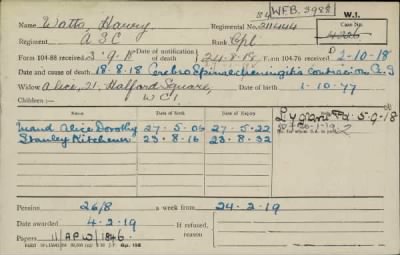 S4 WFB. 3988 W.I.
Name Watts, Harry Regimental No. 211444 Case No.
Regiment A S C Rank Cpl 4206
Form 104-88 received 2-9-18 Date of notification of death 24-8-18 Form 104-76 received 2-10-18
Date and cause of death 18-8-18 Cerebro Spinal Meningitis Contraction
Widow Alice, 21, Halford Square, Date of birth 1-10-77
W C 1
Children:—
Name Date of Birth Date of Expiry Ly grant Pd 5-9-18
Maud Alice Dorothy 27-5-06 27-5-22
Stanley Kitchener 23-8-16 23-8-32
Pension 26/8 a week from 24-2-19
Date awarded 4-2-19 If refused, reason
Papers 11/APW/1846